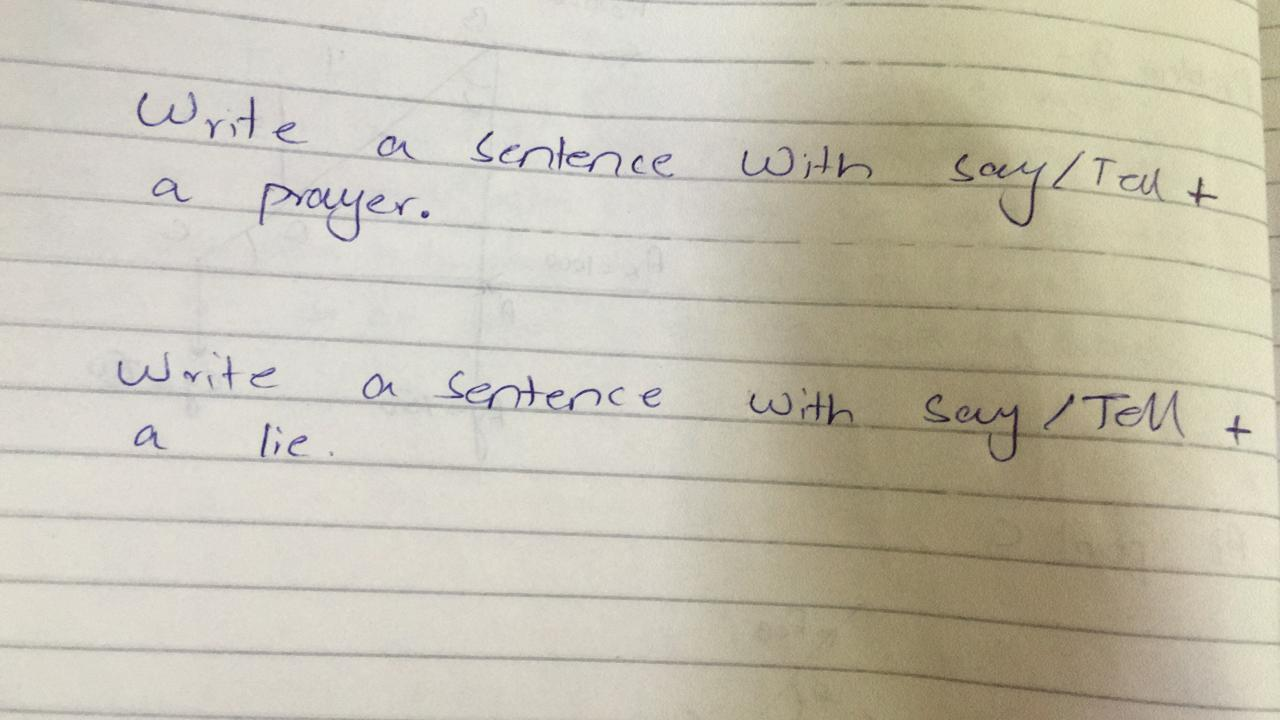 Write a sentence with say/Tell +
a prayer.
Write a sentence with say/Tell +
a lie.